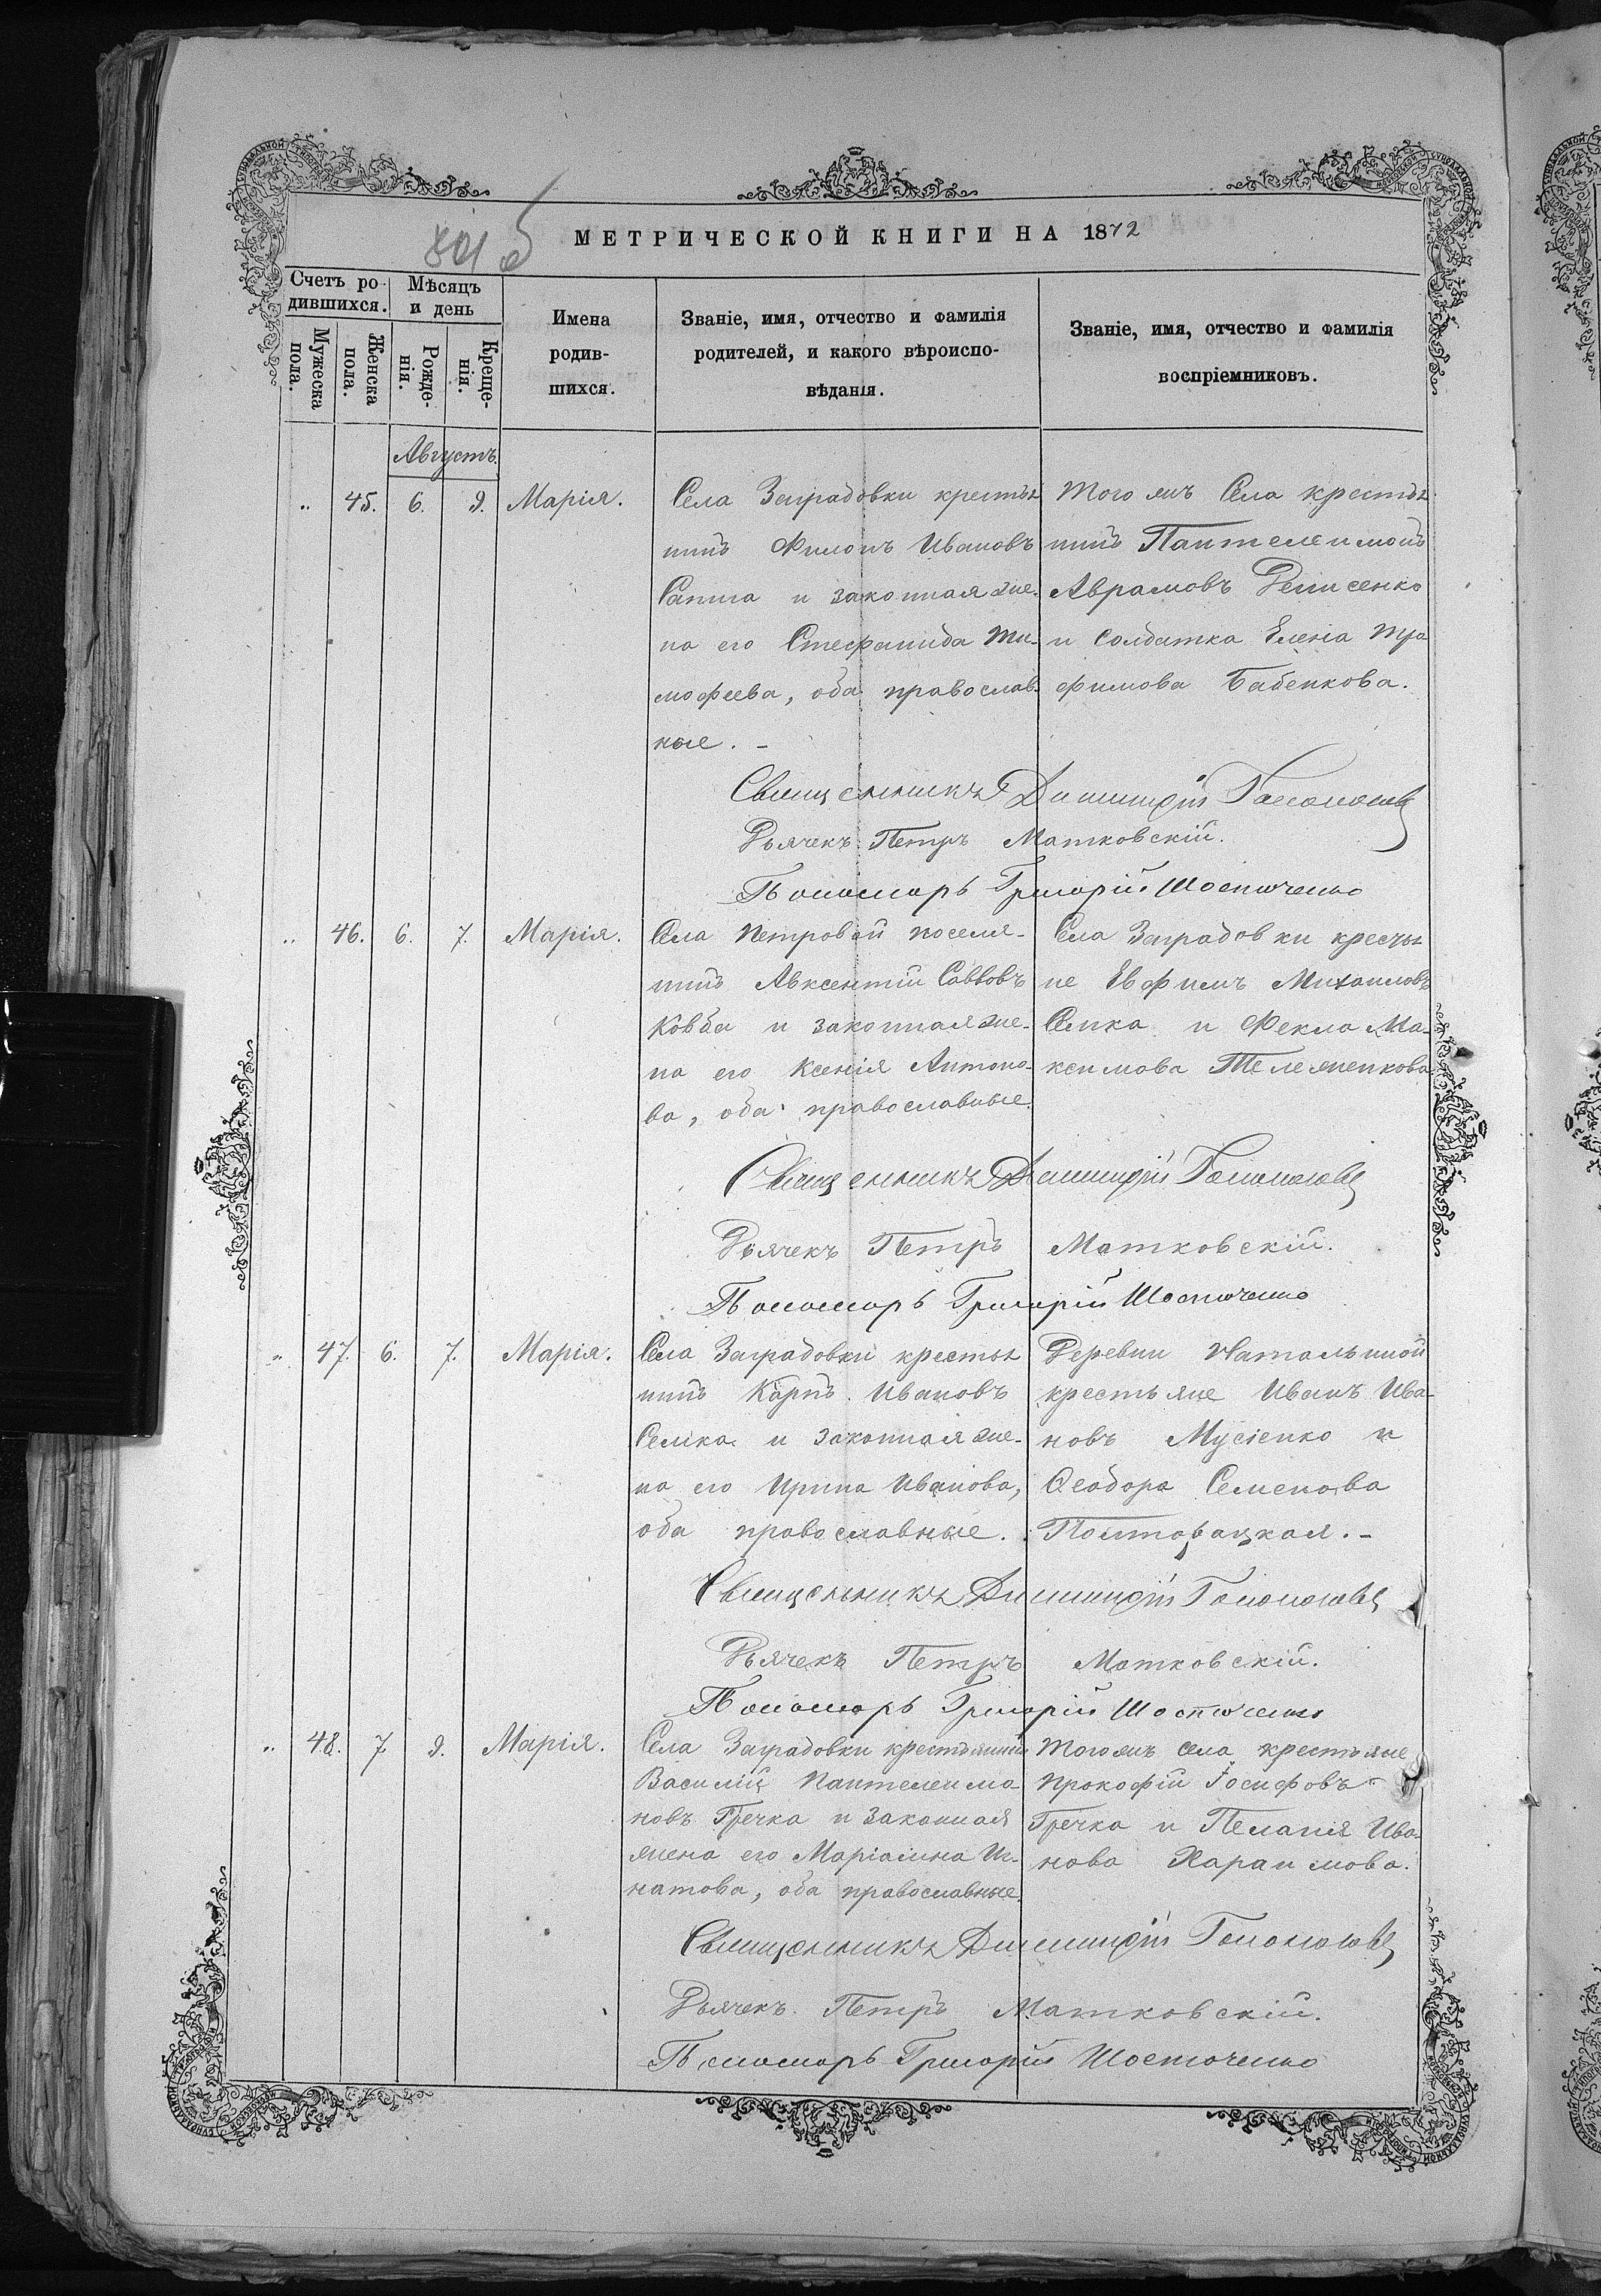 МЕТРИЧЕСКОЙ КНИГИ НА 1872
Счетъ ро-
дившихся.
Мужеска пола.
Женска пола.
Мѣсяцъ
и день
Рожде-
нія.
Креще-
нія.
Имена
родив-
шихся.
Званіе, имя, отчество и фамилія
родителей, и какого вѣроиспо-
вѣданія.
Званіе, имя, отчество и фамилія
воспріемниковъ.
Августъ.
„ 45. 6. 9. Марія.
Села Заградовки крестья
нинъ Филонъ Ивановъ
Сапта и законная же-
на его Стефанида Ти-
мофеева, оба православ-
ные. -
Того жъ Села крестья
нинъ Пантелеимонъ
Аврамовъ Денисенко
и Солдатка Еленіа Тро
фимова Бабенкова.
Священникъ Димитрій
Дьячекъ Петръ Матковскій.
Пономарь Григорій Шосточенко
„ 46. 6. 7. Марія.
Села Петровой поселя-
нинъ Авксентій Савовъ
Ковба и законная же-
на его Ксенія Антоно-
ва, оба православные.
Села Заградовки крестья
не Евфимъ Михаиловъ
Семка и Фекла Ма-
ксимова Тележенкова.
Священникъ Димитрій
Дьячекъ Петръ Матковскій.
Пономарь Григорій Шосточенко
„ 47. 6. 7. Марія.
Села Заградовки крестья
нинъ Карпъ Ивановъ
Семка и законная же-
на его Ирина Иванова,
оба православные.
Деревни Натальиной
крестьяне Иванъ Ива-
новъ Мусіенко и
Ѳеодора Семенова
Полторацкая. -
Священникъ Димитрій
Дьячекъ Петръ Матковскій.
Пономарь Григорій Шосточенко
„ 48. 7. 9. Марія.
Села Заградовки крестьянинъ
Василій Пантелеимо-
новъ Гречка и законная
жена его Маріамна Иг-
натова, оба православные.
Того жъ села крестьяне
Прокофій Іосифовъ
Гречка и Пелагія Ива-
нова Хараимова.
Священникъ Димитрій
Дьячекъ Петръ Матковскій.
Пономарь Григорій Шосточенко